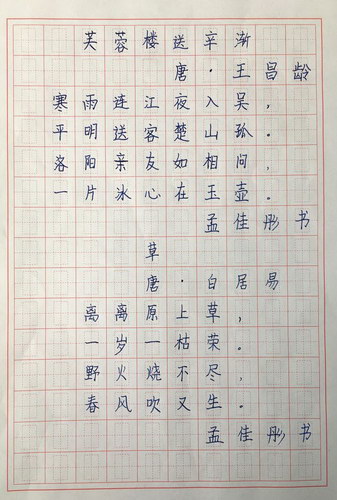 芙蓉楼送辛渐
唐·王昌龄
寒雨连江夜入吴，
平明送客楚山孤。
洛阳亲友如相问，
一片冰心在玉壶。
孟佳彤书
草
唐·白居易
离离原上草，
一岁一枯荣。
野火烧不尽，
春风吹又生。
孟佳彤书